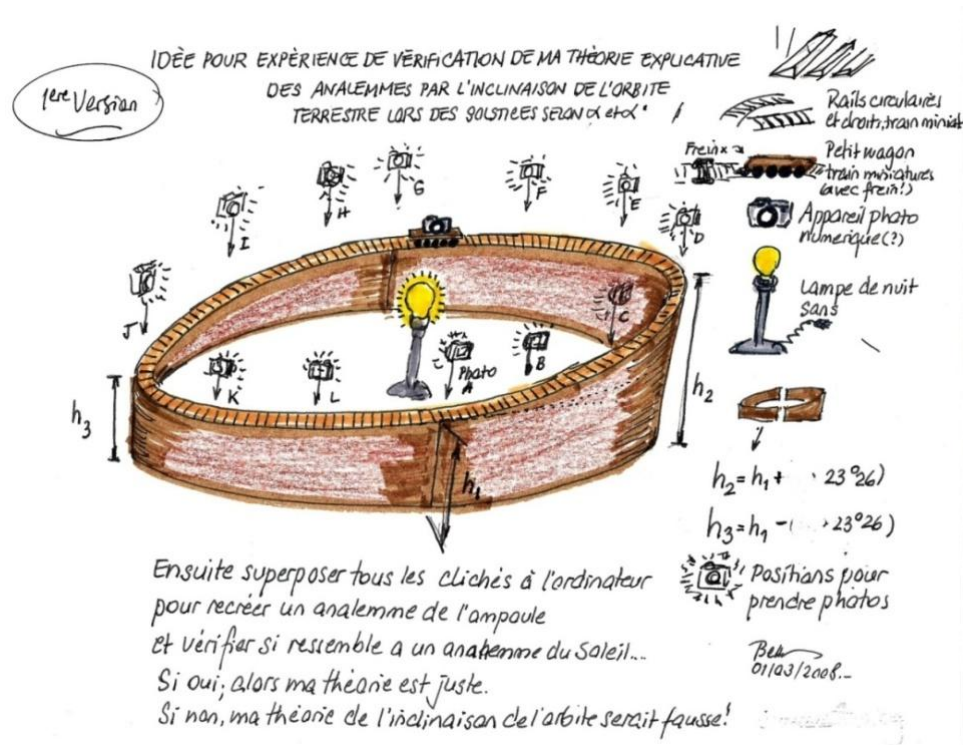 IDÈE POUR EXPÈRIENCE DE VÈRIFICATION DE MA THÈORIE EXPLICATIVE
DES ANALEMMES PAR L'INCLINAISON DE L'ORBITE
TERRESTRE LORS DES SOLSTICES SELON α et α'
1ere Version
Rails circulaires
et droits, train miniat
Freinx
Petit wagon
train miniatures
(avec frein!)
Appareil photo
numerique(?)
Lampe de nuit
sans
G
F
H
E
I
D
J
C
B
Photo
A
K
L
h3
h2
h1
h2 = h1 + 23°26)
h3 = h1 - ( 23°26)
Positions pour
prendre photos
Ensuite superposer tous les clichés à l'ordinateur
pour recréer un analemme de l'ampoule
et vérifier si ressemble a un analemme du Soleil...
Si oui; alors ma théorie est juste.
Si non, ma théorie de l'inclinaison de l'orbite serait fausse!
01/03/2008.-